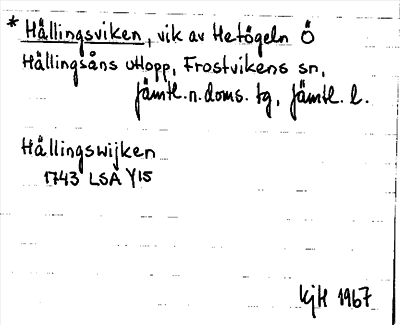 * Hållingsviken, vik av Hetögeln Ö
Hållingsåns utlopp, Frostvikens sn,
Jämtl. n. doms. tg, Jämtl. l.
Hållingswijken
1743 LSA Y15
KJH 1967